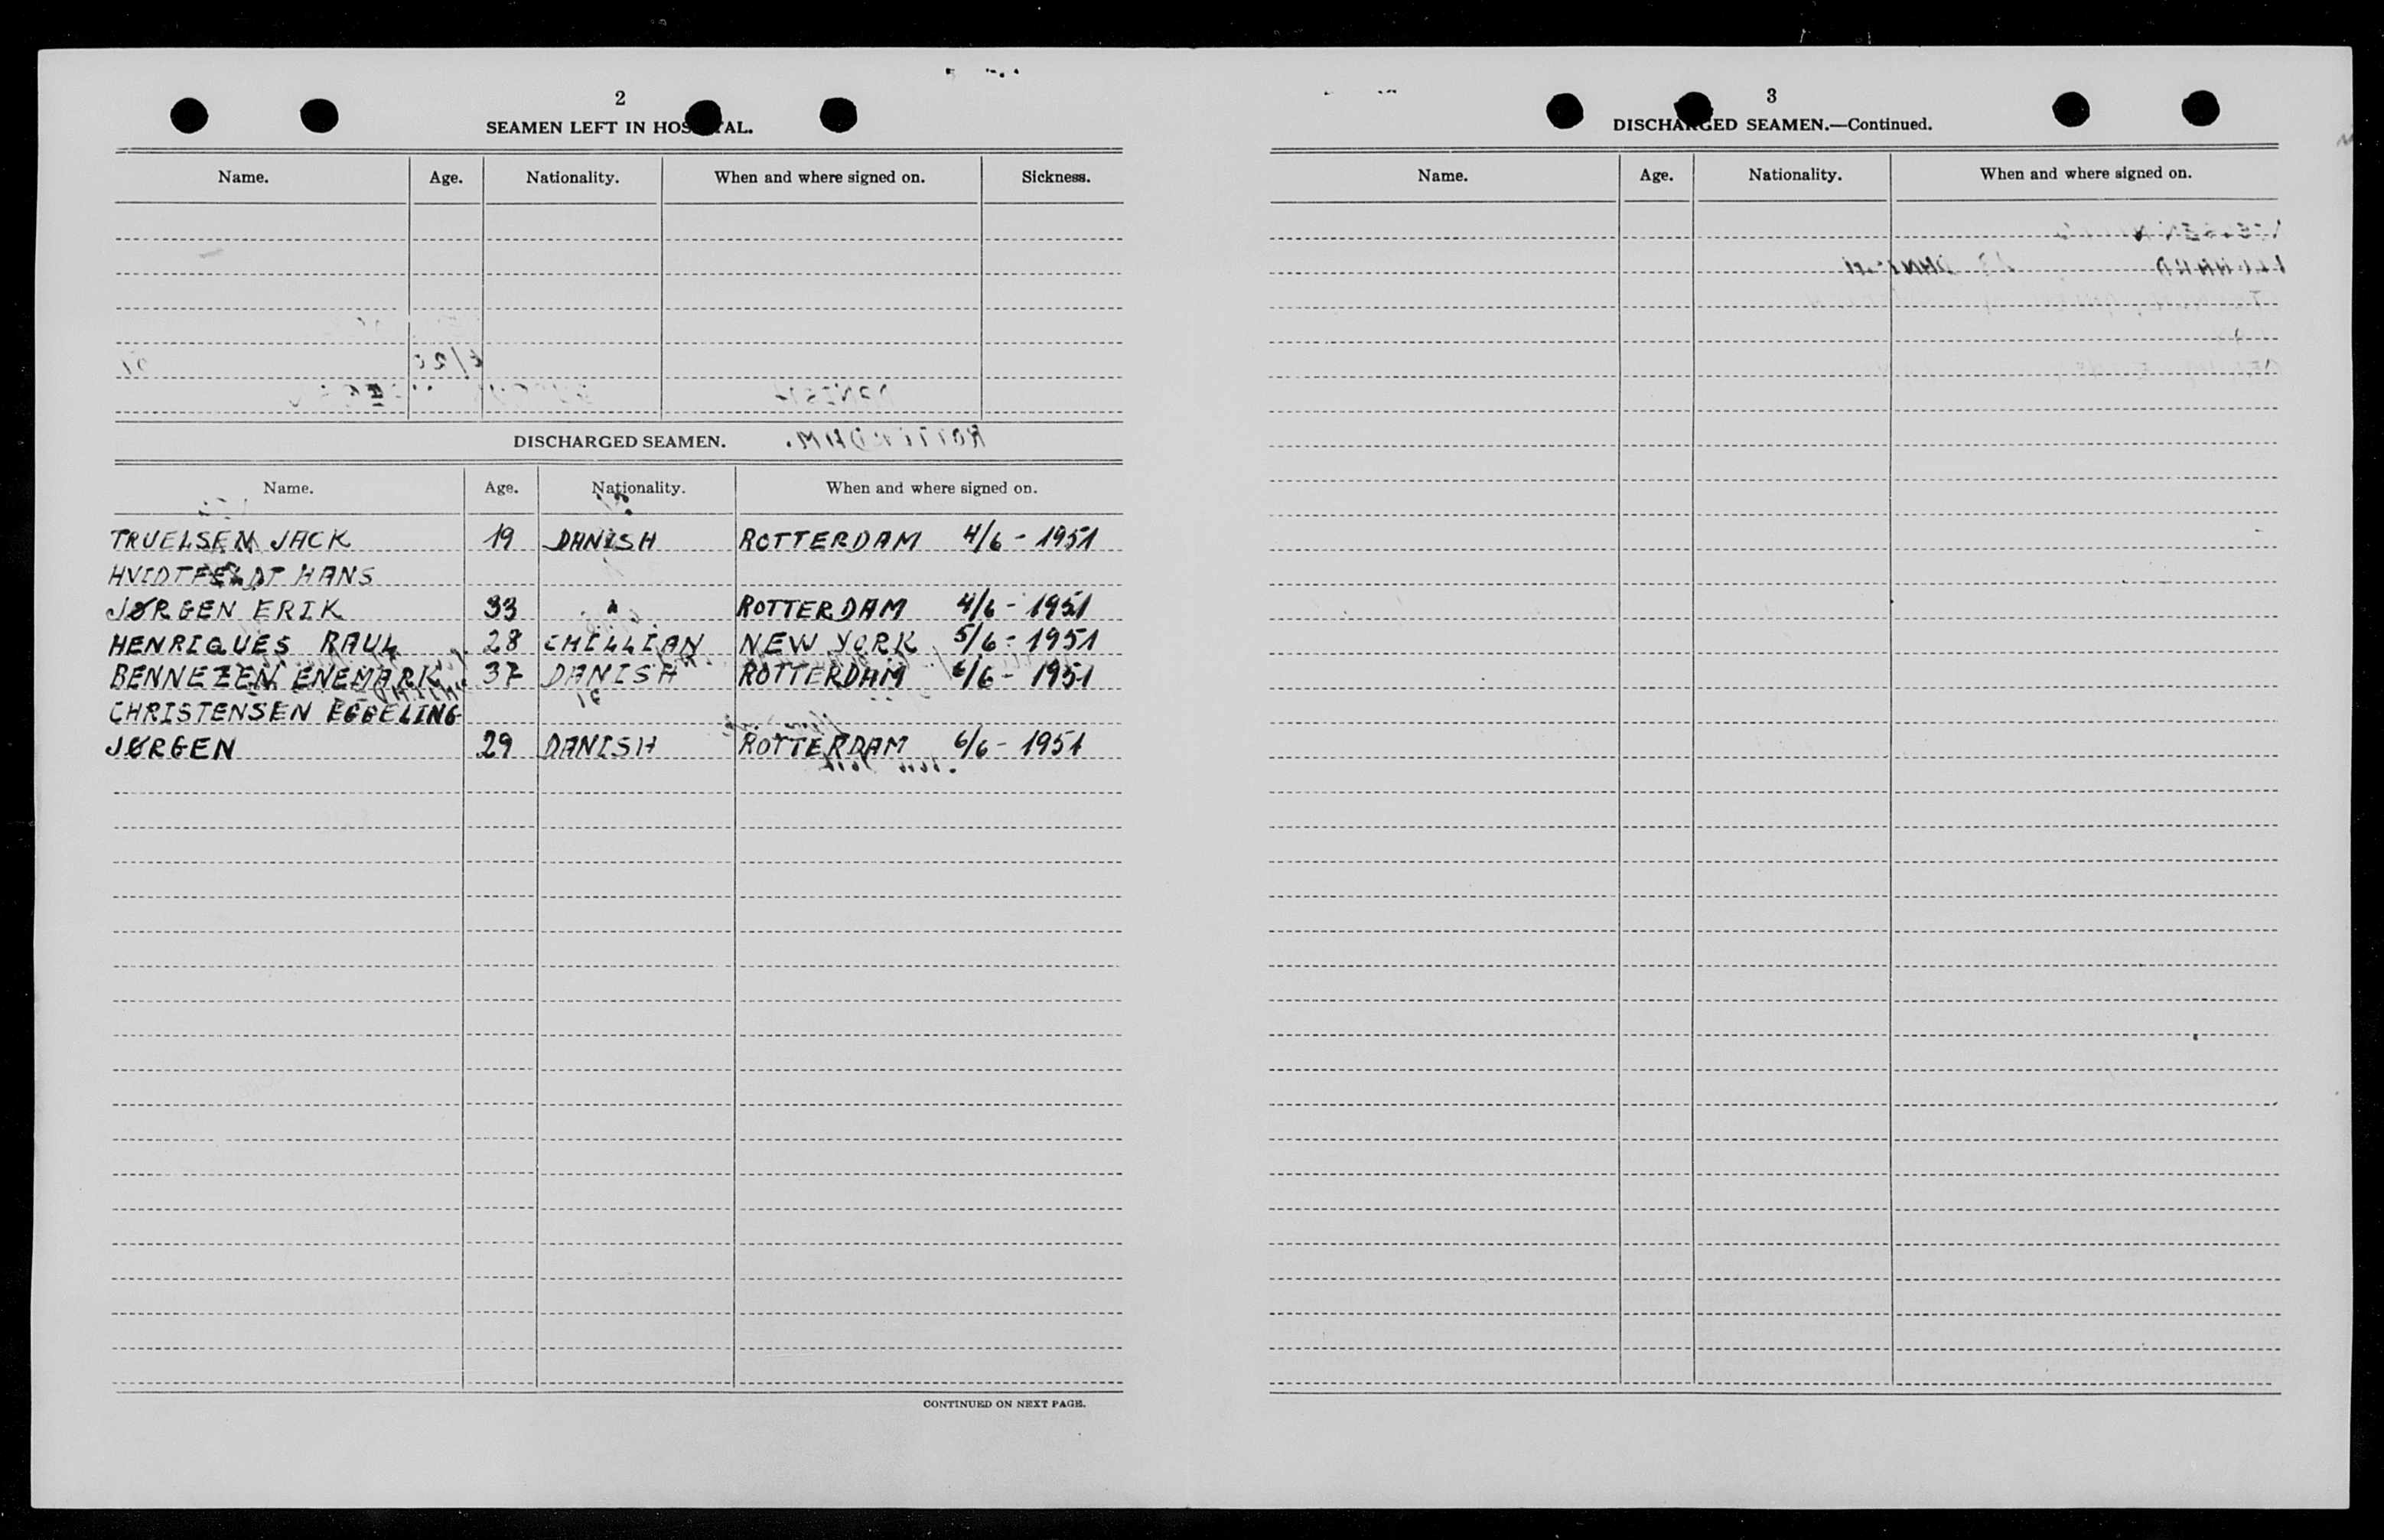 2
SEAMEN LEFT IN HOSPITAL.
Name. Age. Nationality. When and where signed on. Sickness.
DISCHARGED SEAMEN.
Name. Age. Nationality. When and where signed on.
TRUELSEN JACK 19 DANISH ROTTERDAM 4/6 - 1951
HVIDTFELDT HANS
JØRGEN ERIK 33 " ROTTERDAM 4/6 - 1951
HENRIQUES RAUL 28 CHILLIAN NEW YORK 5/6 - 1951
BENNEZEN ENEMARK 37 DANISH ROTTERDAM 6/6 - 1951
CHRISTENSEN EGGELING
JØRGEN 29 DANISH ROTTERDAM 6/6 - 1951
CONTINUED ON NEXT PAGE.
3
DISCHARGED SEAMEN.—Continued.
Name. Age. Nationality. When and where signed on.